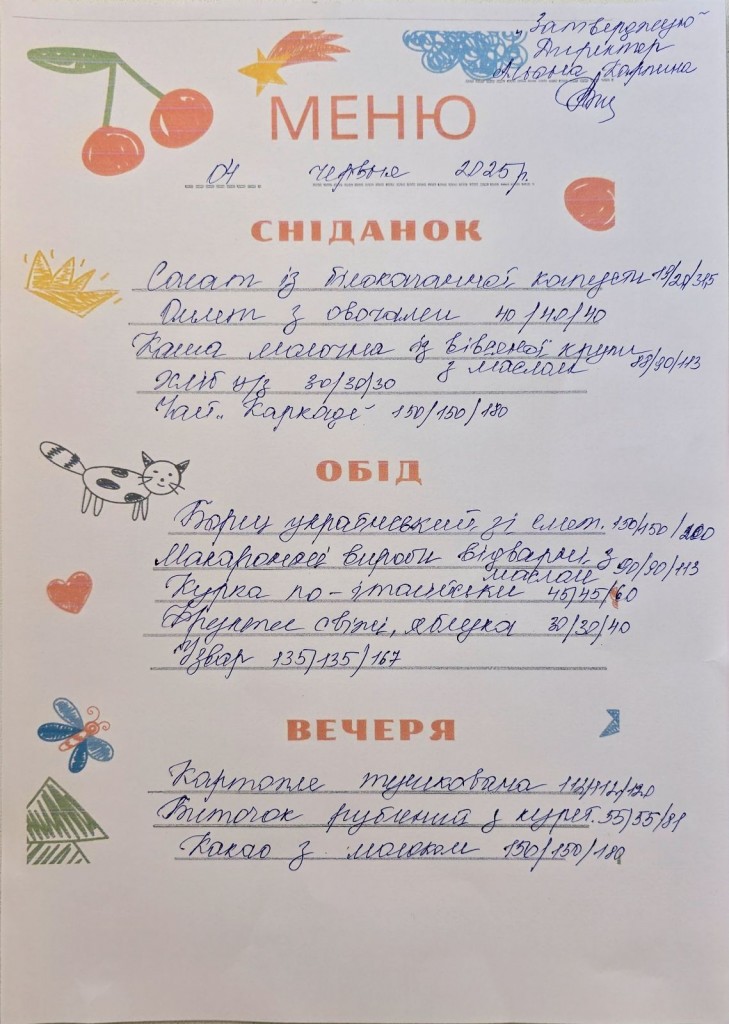 „Затверджую"
Директор
Альона Карпина
МЕНЮ
04 червня 2025р.
СНІДАНОК
Салат із білокачанної капусти 19/20/31,5
Омлет з овочами 40/40/40
Каша молочна із вівсяної крупи
з маслом 88/90/113
Хліб ц/з 30/30/30
Чай „Каркаде" 150/150/180
ОБІД
Борщ український зі смет. 150/150/200
Макаронні вироби відварні з
маслом 90/90/113
Курка по-італійськи 45/45/60
Фрукти свіжі, яблука 30/30/40
Узвар 135/135/167
ВЕЧЕРЯ
Картопля тушкована 112/112/120
Биточок рублений з курят. 55/55/81
Какао з молоком 150/150/180